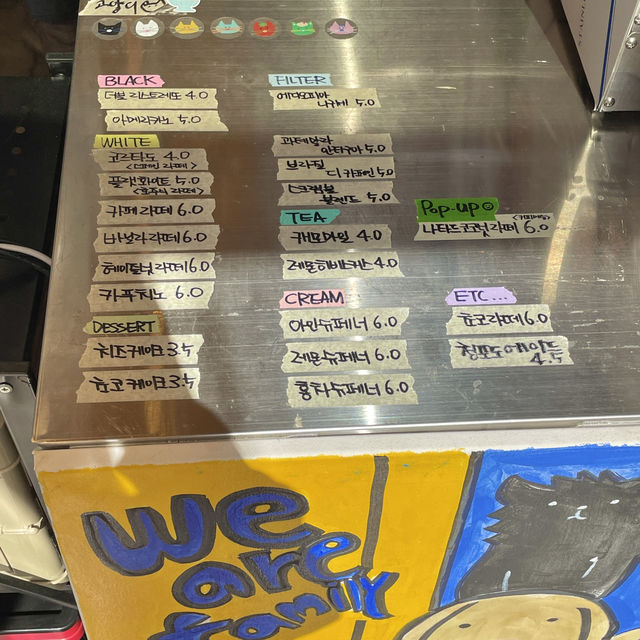 BLACK
더블 리스트레또 4.0
아메리카노 5.0
WHITE
코르타도 4.0
플랫화이트 5.0
<호주식 라떼>
카페라떼 6.0
바닐라라떼 6.0
헤이즐넛라떼 6.0
카푸치노 6.0
DESSERT
치즈케이크 3.5
초코케이크 3.5
FILTER
에티오피아
5.0
과테말라
안티구아 5.0
브라질
디카페인 5.0
블렌드 5.0
TEA
캐모마일 4.0
레몬히비스커스 4.0
CREAM
아인슈페너 6.0
레몬슈페너 6.0
홍차슈페너 6.0
Pop-up
나타드코코넛라떼 6.0
ETC...
초코라떼 6.0
청포도에이드
4.5
we
are
family